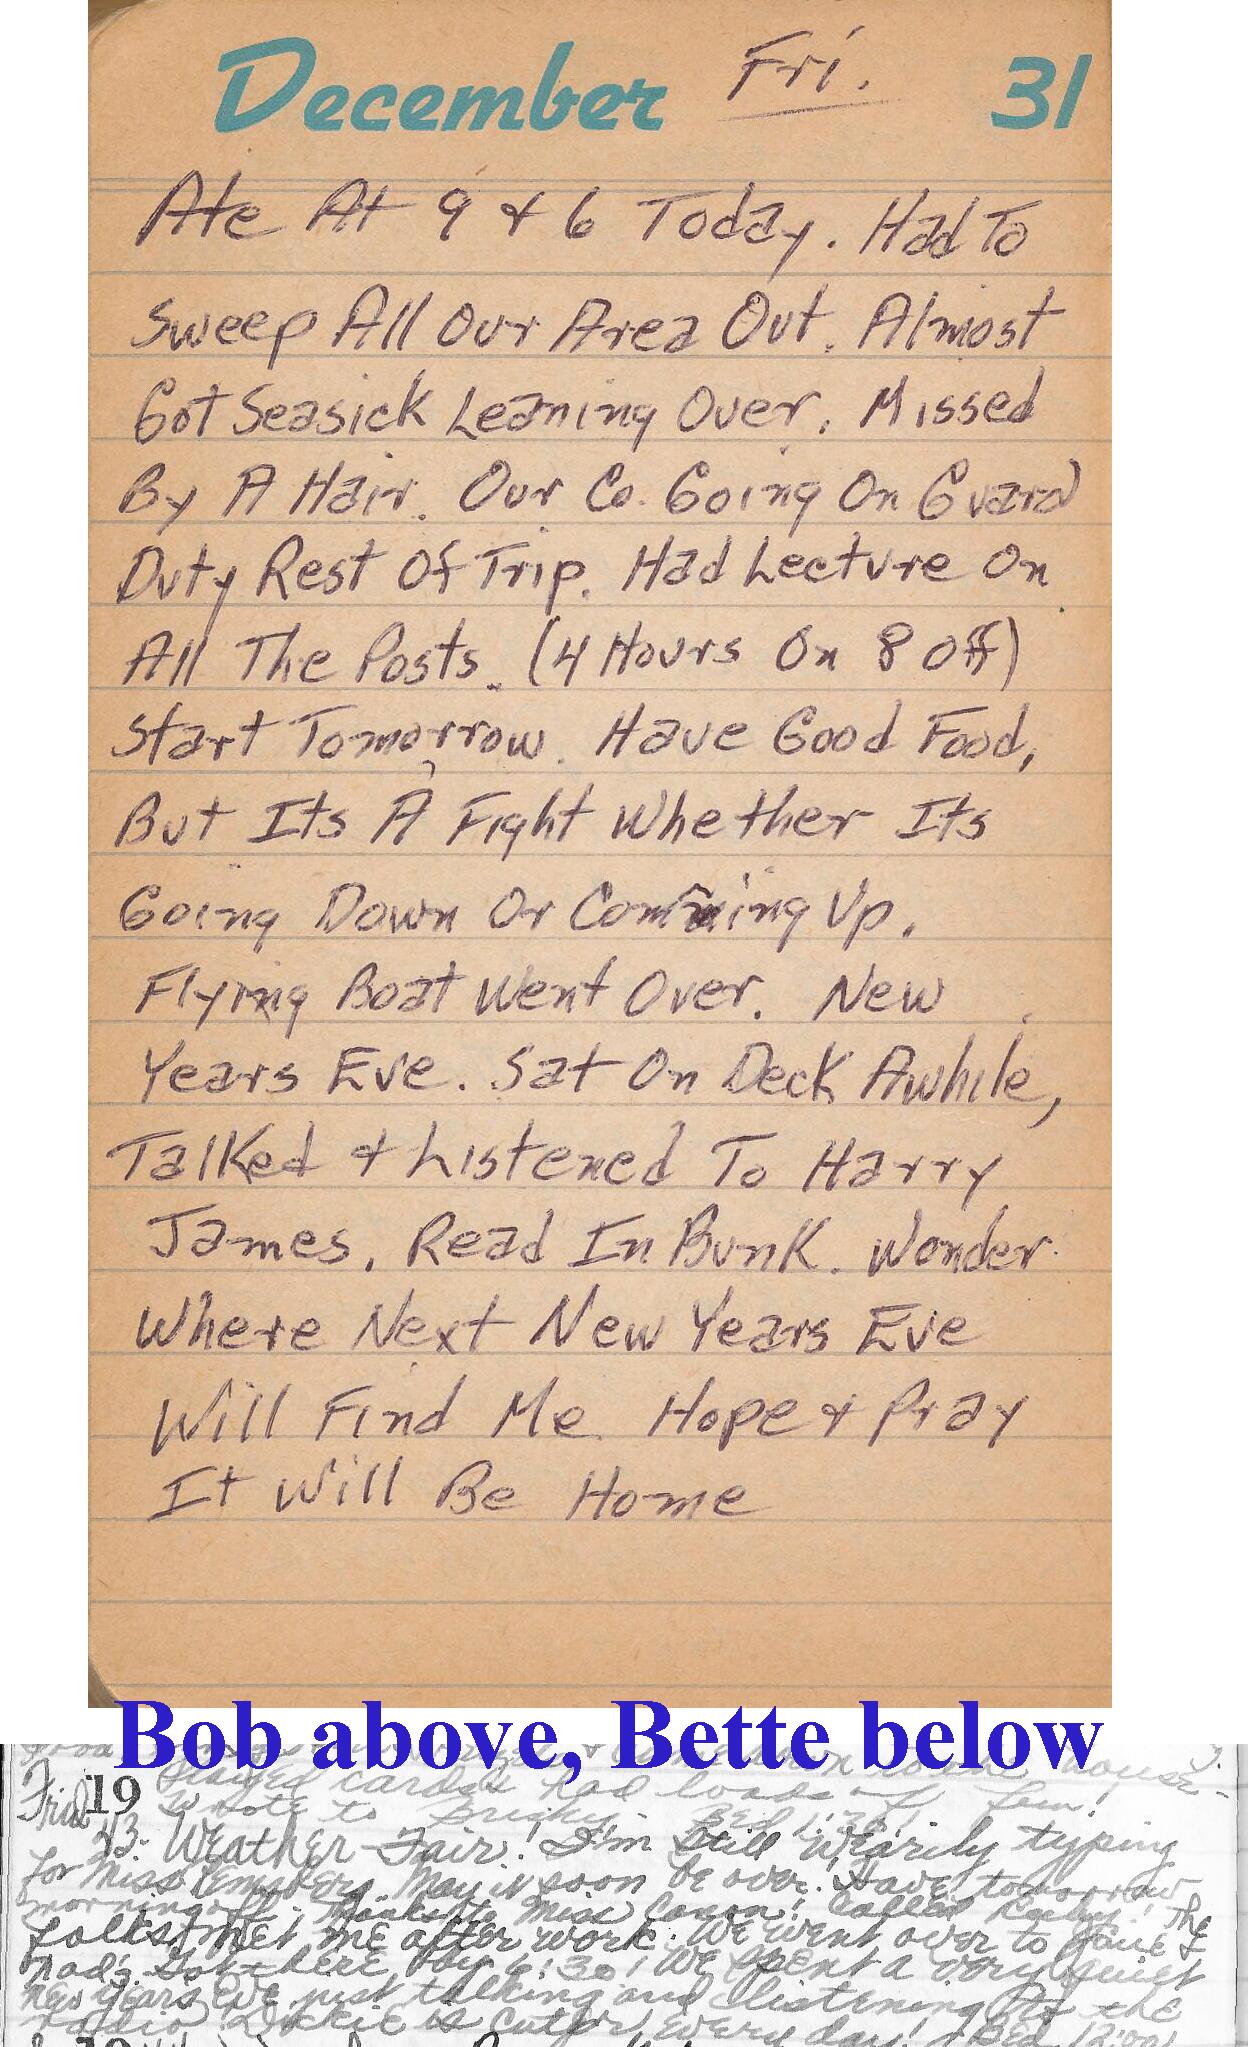 December Fri. 31
Ate At 9 & 6 Today. Had To
Sweep All Our Area Out. Almost
Got Seasick Leaning Over. Missed
By A Hair. Our Co. Going On Guard
Duty Rest Of Trip. Had Lecture On
All The Posts. (4 Hours On 8 Off)
Start Tomorrow. Have Good Food,
But Its A Fight Whether Its
Going Down Or Comming Up.
Flying Boat Went Over. New
Years Eve. Sat On Deck Awhile,
Talked & Listened To Harry
James. Read In Bunk. Wonder
Where Next New Years Eve
Will Find Me Hope & Pray
It Will Be Home
Bob above, Bette below
house.
played cards had loads of fun!
Frid 19 wrote to Bed
43. Weather-Fair! I'm still wearily typing
for Miss May it soon be over! Have tomorrow
morning off, thanks to Miss Called The
folks met me after work. We went over to &
Rod's. Got there by 6:30! We spent a very quiet
New Years Eve just talking and listening to the
radio Dickie is cuter every day! Bed 12:00!